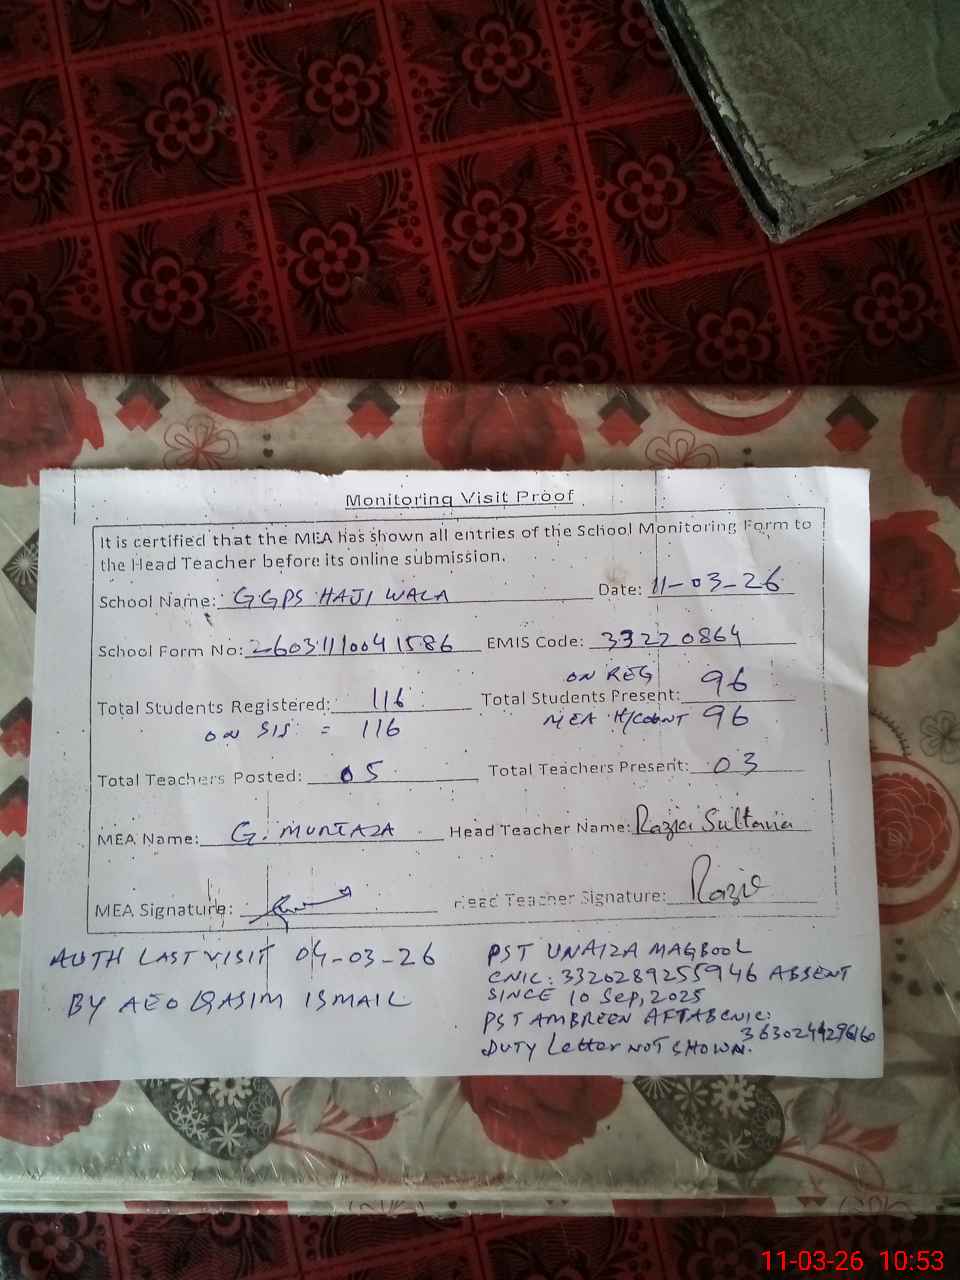 Monitoring Visit Proof
It is certified that the MEA has shown all entries of the School Monitoring Form to
the Head Teacher before its online submission.
School Name: GGPS HAJI WALA Date: 11-03-26
School Form No: 260311110041586 EMIS Code: 33220864
ON REG
Total Students Registered: 116 Total Students Present: 96
ON SIS = 116 MEA H/COUNT 96
Total Teachers Posted: 05 Total Teachers Present: 03
MEA Name: G. MURTAZA Head Teacher Name: Razia Sultana
MEA Signature: Head Teacher Signature: Razia
AUTH LAST VISIT 04-03-26
BY AEO QASIM ISMAIL
PST UNAIZA MAQBOOL
CNIC: 3320289255946 ABSENT
SINCE 10 Sep, 2025
PST AMBREEN AFTAB CNIC:
DUTY Letter NOT SHOWN.
11-03-26 10:53